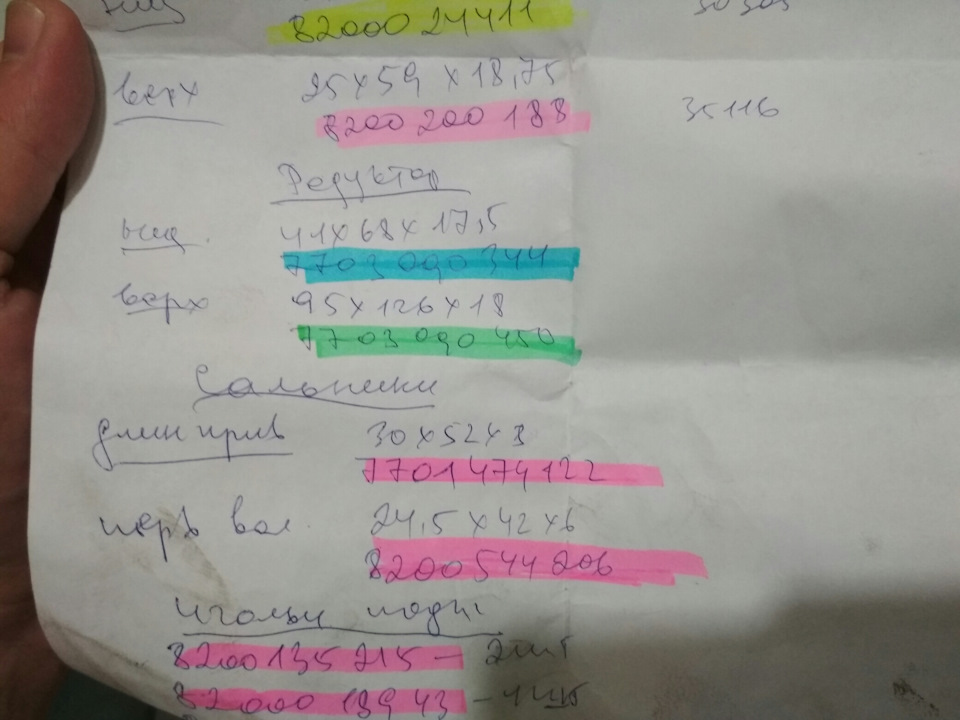 8200024411
верх 25×59×18,75
8200 200 188 35116
Редуктор
41×68×17,5
7703 090 344
верх 95×126×18
7703 090 450
Сальники
длин прив 30×52×8
7701474122
перв вал. 24,5×42×6
8200544206
игольч подш
8200135215 – 2шт
82000 18943 – 1шт